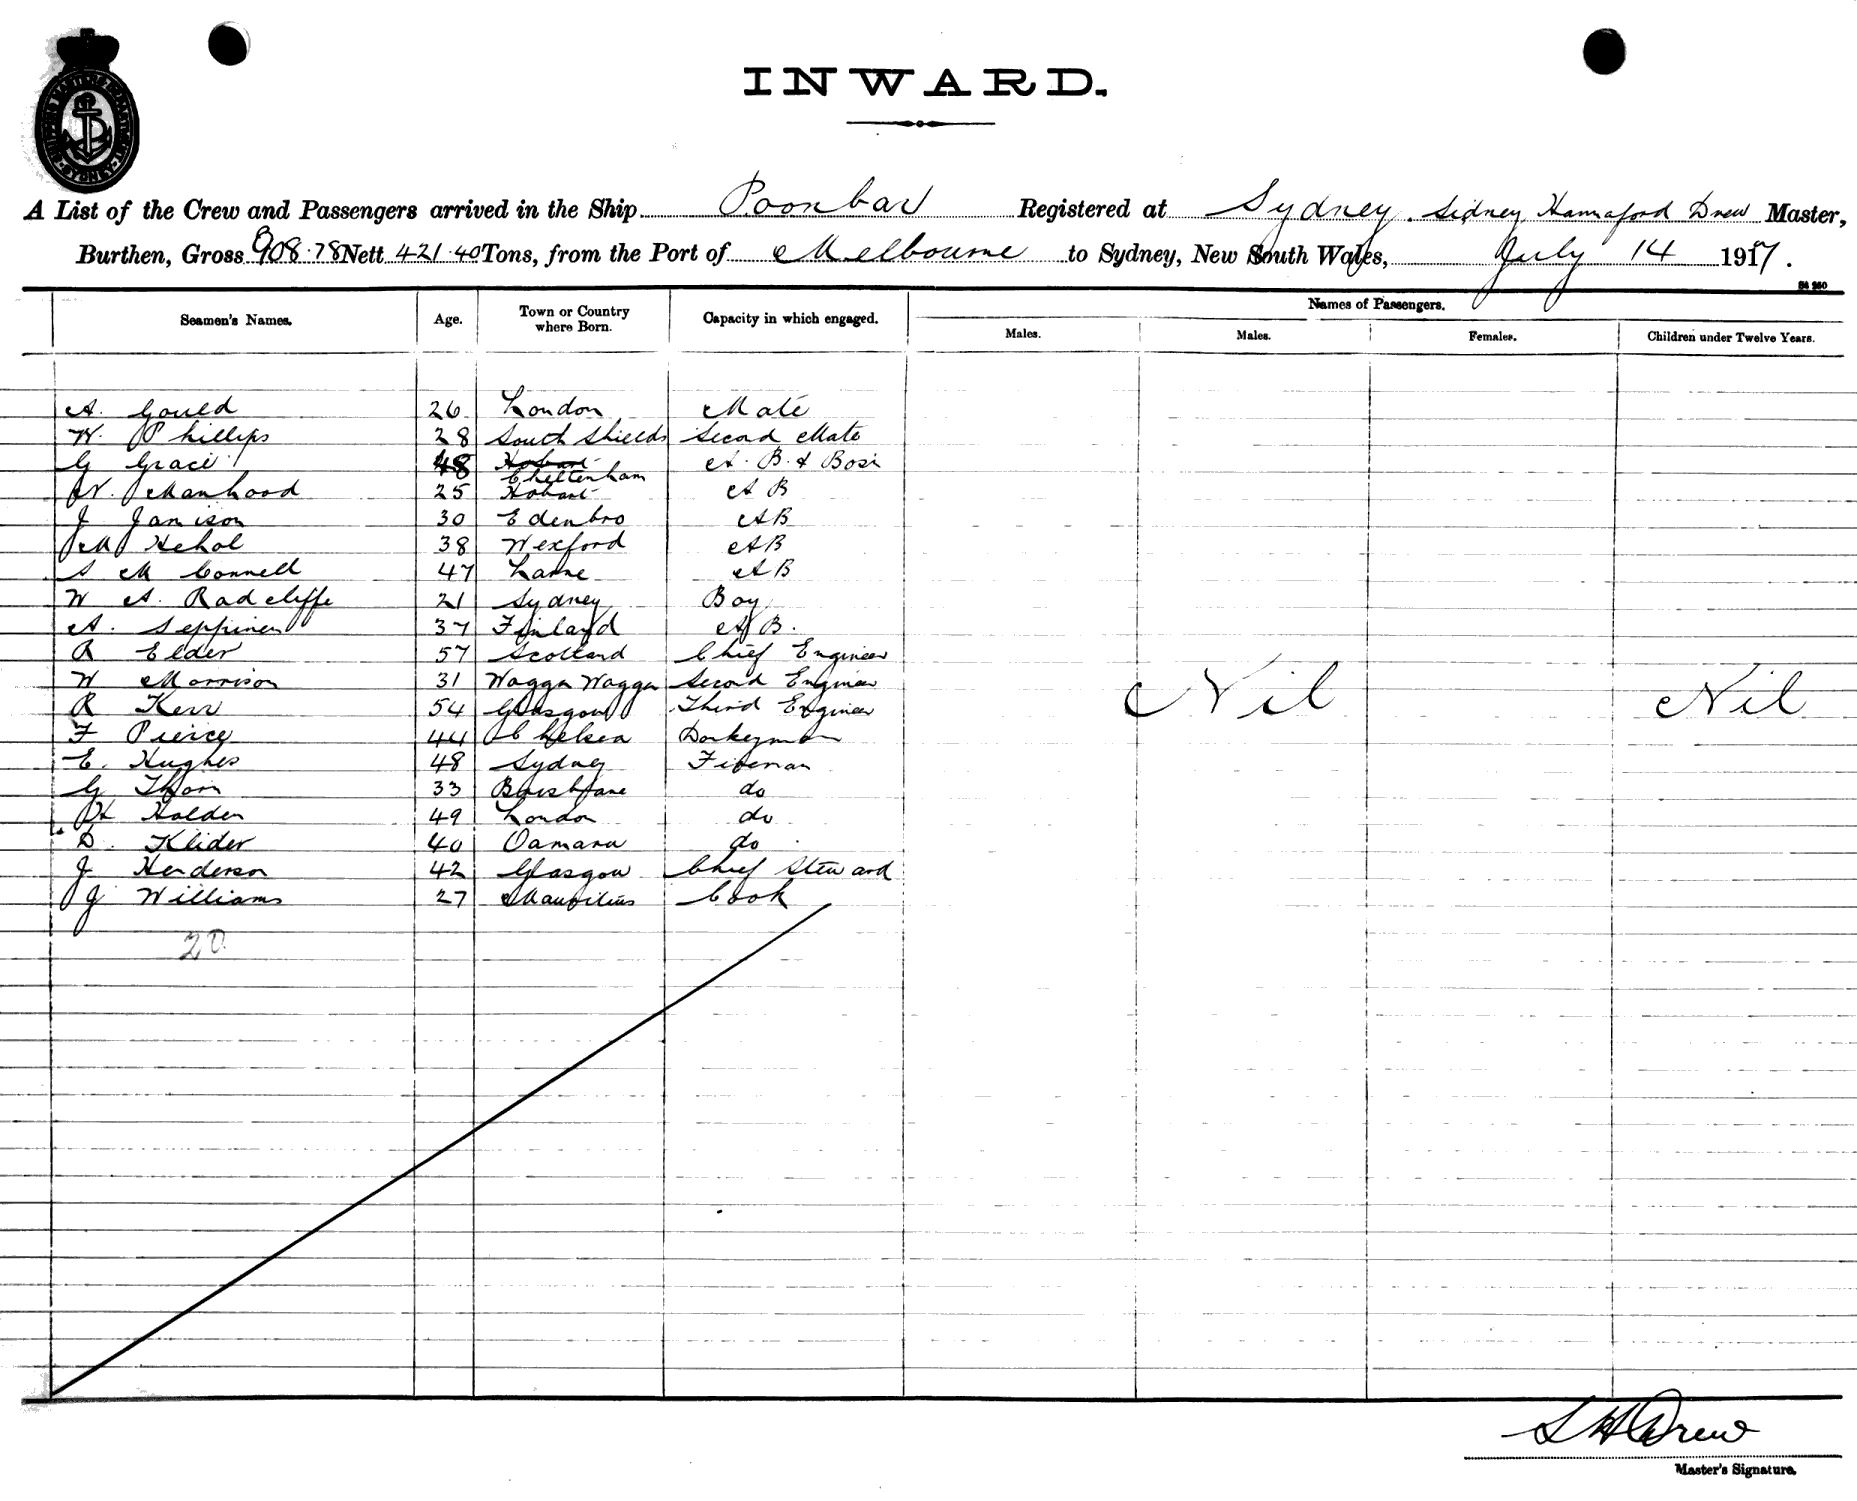 SHIPPING MASTER'S DEPARTMENT SYDNEY
INWARD.
A List of the Crew and Passengers arrived in the Ship Poonbar Registered at Sydney. Sidney Hannaford Drew Master,
Burthen, Gross 908.78 Nett 421.40 Tons, from the Port of Melbourne to Sydney, New South Wales, July 14 1917.
Seamen's Names. Age. Town or Country where Born. Capacity in which engaged. Names of Passengers.
Males. Males. Females. Children under Twelve Years.
A. Gould 26 London Mate
W. Phillips 28 South Shields Second Mate
G Grace 48 Hobart Cheltenham A.B. & Bosn
W. Manhood 25 Hobart A B
J Jamison 30 Edenbro A B
M Hehol 38 Wexford A B
S M Connell 47 Larne A B
W A. Radcliffe 21 Sydney Boy
A. Seppinen 37 Finland A B.
R Elder 57 Scotland Chief Engineer
W Morrison 31 Wagga Wagga Second Engineer
R Kerr 54 Glasgow Third Engineer Nil Nil
F Pierce 44 Chelsea Donkeyman
E. Hughes 48 Sydney Fireman
G Thorn 33 Brisbane do
H Holden 49 London do
D. Klider 40 Oamaru do
J Henderson 42 Glasgow Chief Steward
J Williams 27 Mauritius Cook
20
S H Drew
Master's Signature.